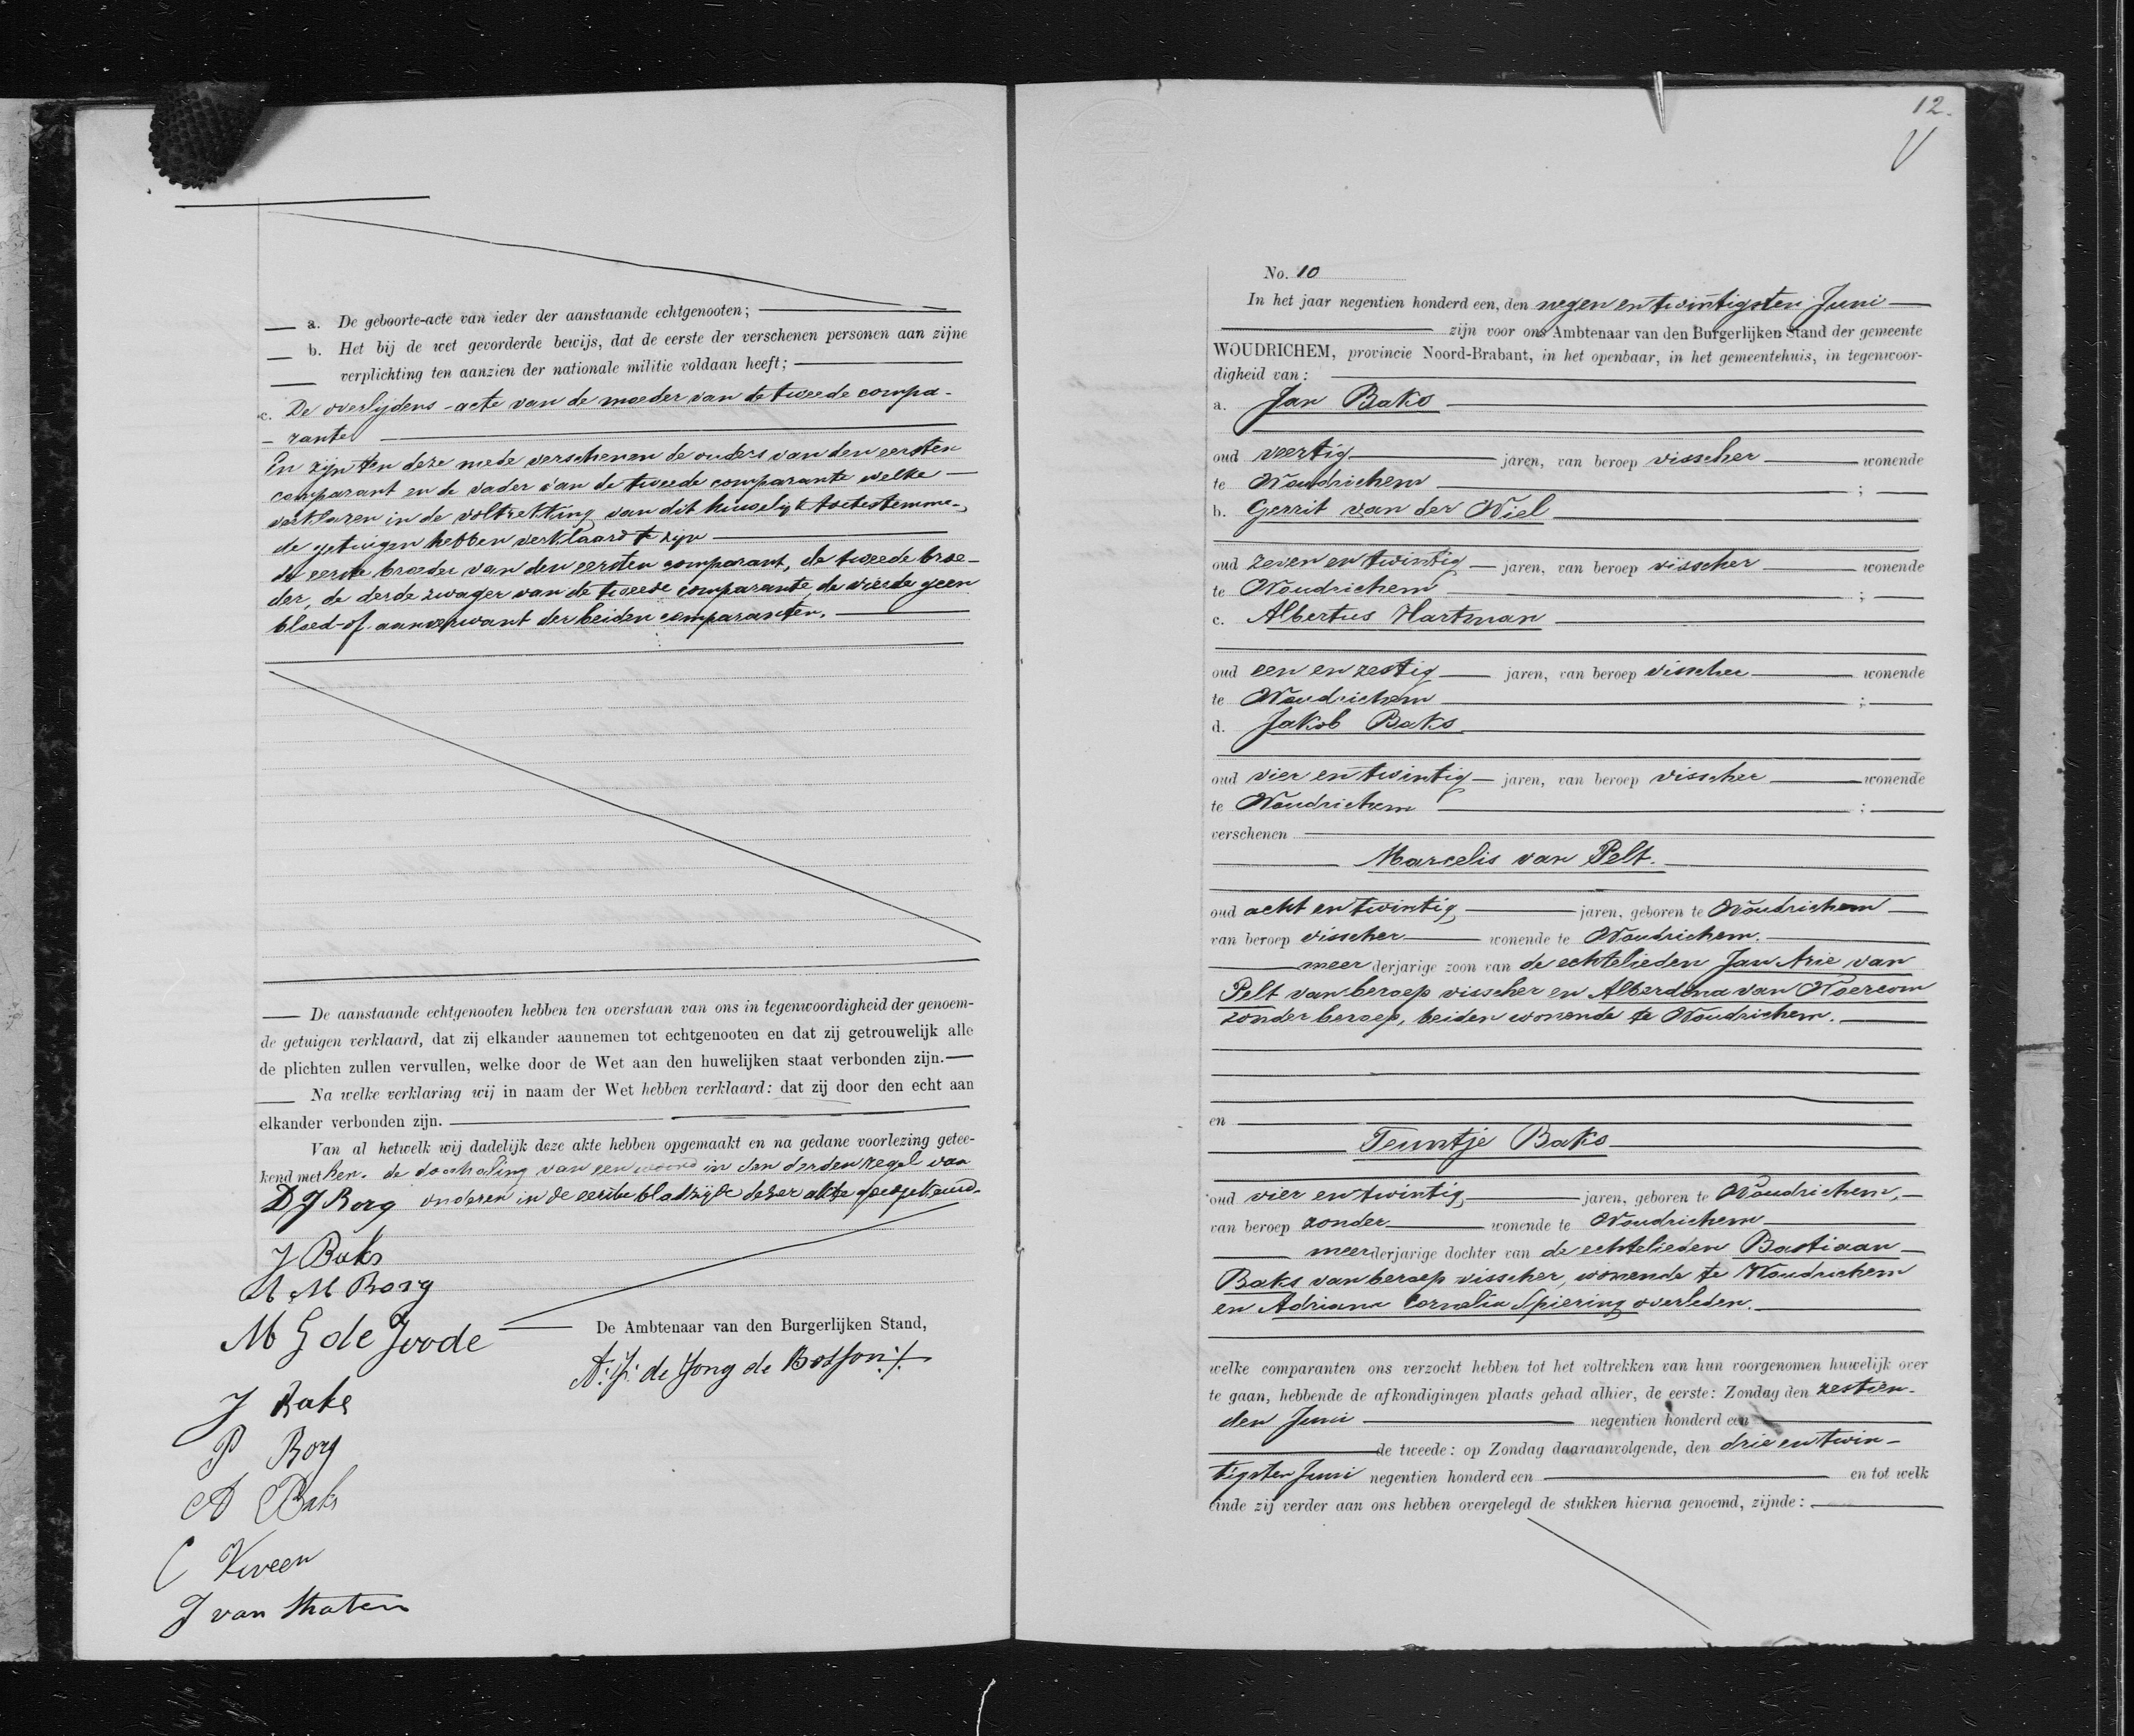 a. De geboorte-acte van ieder der aanstaande echtgenooten;
b. Het bij de wet gevorderde bewijs, dat de eerste der verschenen personen aan zijne
verplichting ten aanzien der nationale militie voldaan heeft;
c. De overlijdens-acte van de moeder van de tweede compa-
rante
En zijn ten deze mede verschenen de ouders van den eersten
comparant en de vader van de tweede comparante welke
verklaren in de voltrekking van dit huwelijk toetestemmen,
de getuigen hebben verklaard te zijn
de eerste broeder van den eersten comparant, de tweede broe-
der, de derde zwager van de tweede comparante, de vierde geen
bloed-of aanverwant der beiden comparanten.
De aanstaande echtgenooten hebben ten overstaan van ons in tegenwoordigheid der genoem-
de getuigen verklaard, dat zij elkander aannemen tot echtgenooten en dat zij getrouwelijk alle
de plichten zullen vervullen, welke door de Wet aan den huwelijken staat verbonden zijn.
Na welke verklaring wij in naam der Wet hebben verklaard: dat zij door den echt aan
elkander verbonden zijn.
Van al hetwelk wij dadelijk deze akte hebben opgemaakt en na gedane voorlezing getee-
kend met hen. de doorhaling van een woord in den derden regel van
D J Borg onderen in de eerste bladzijde dezer akte goedgekeurd.
J Baks
A M Borg
M G de Joode
De Ambtenaar van den Burgerlijken Stand,
de Jong de Bosson
J Bake
P Borg
A Baks
C Viveen
J van Straten
12.
V
No. 10
In het jaar negentien honderd een, den negen en twintigsten Juni
zijn voor ons Ambtenaar van den Burgerlijken Stand der gemeente
WOUDRICHEM, provincie Noord-Brabant, in het openbaar, in het gemeentehuis, in tegenwoor-
digheid van:
a. Jan Baks
oud veertig jaren, van beroep visscher wonende
te Woudrichem ;
b. Gerrit van der Wiel
oud zeven en twintig jaren, van beroep visscher wonende
te Woudrichem ;
c. Albertus Hartman
oud een en zestig jaren, van beroep visscher wonende
te Woudrichem ;
d. Jakob Baks
oud vier en twintig jaren, van beroep visscher wonende
te Woudrichem ;
verschenen
Marcelis van Pelt.
oud acht en twintig jaren, geboren te Woudrichem
van beroep visscher wonende te Woudrichem.
meer derjarige zoon van de echtelieden Jan Arie van
Pelt van beroep visscher en Alberdina van Woercom
zonder beroep, beiden wonende te Woudrichem.
en
Teuntje Baks
oud vier en twintig jaren, geboren te Woudrichem,
van beroep zonder wonende te Woudrichem
meerderjarige dochter van de echtelieden Bastiaan
Baks van beroep visscher, wonende te Woudrichem
en Adriana Cornelia Spiering overleden.
welke comparanten ons verzocht hebben tot het voltrekken van hun voorgenomen huwelijk over
te gaan, hebbende de afkondigingen plaats gehad alhier, de eerste: Zondag den zestien-
den Juni negentien honderd een
de tweede: op Zondag daaraanvolgende, den drie en twin-
tigsten Juni negentien honderd een en tot welk
einde zij verder aan ons hebben overgelegd de stukken hierna genoemd, zijnde: